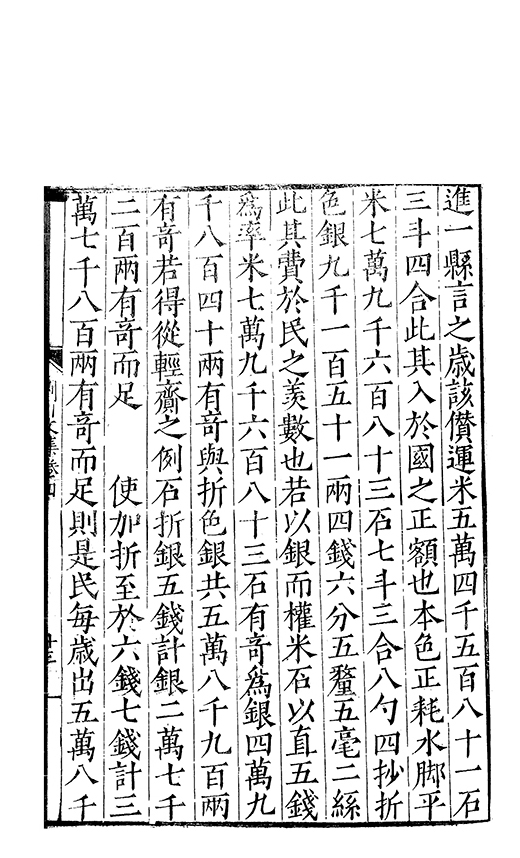 進一縣言之歲該儧運米五萬四千五百八十一石
三斗四合此其入於國之正額也本色正耗水脚平
米七萬九千六百八十三石七斗三合八勺四抄折
色銀九千一百五十一兩四錢六分五釐五毫二絲
此其費於民之羨數也若以銀而權米石以直五錢
爲率米七萬九千六百八十三石有竒爲銀四萬九
千八百四十兩有竒與折色銀共五萬八千九百兩
有竒若得從輕齎之例石折銀五錢計銀二萬七千
二百兩有竒而足　　使加折至於六錢七錢計三
萬七千八百兩有竒而足則是民每歲出五萬八千
荆川文集卷四
十三